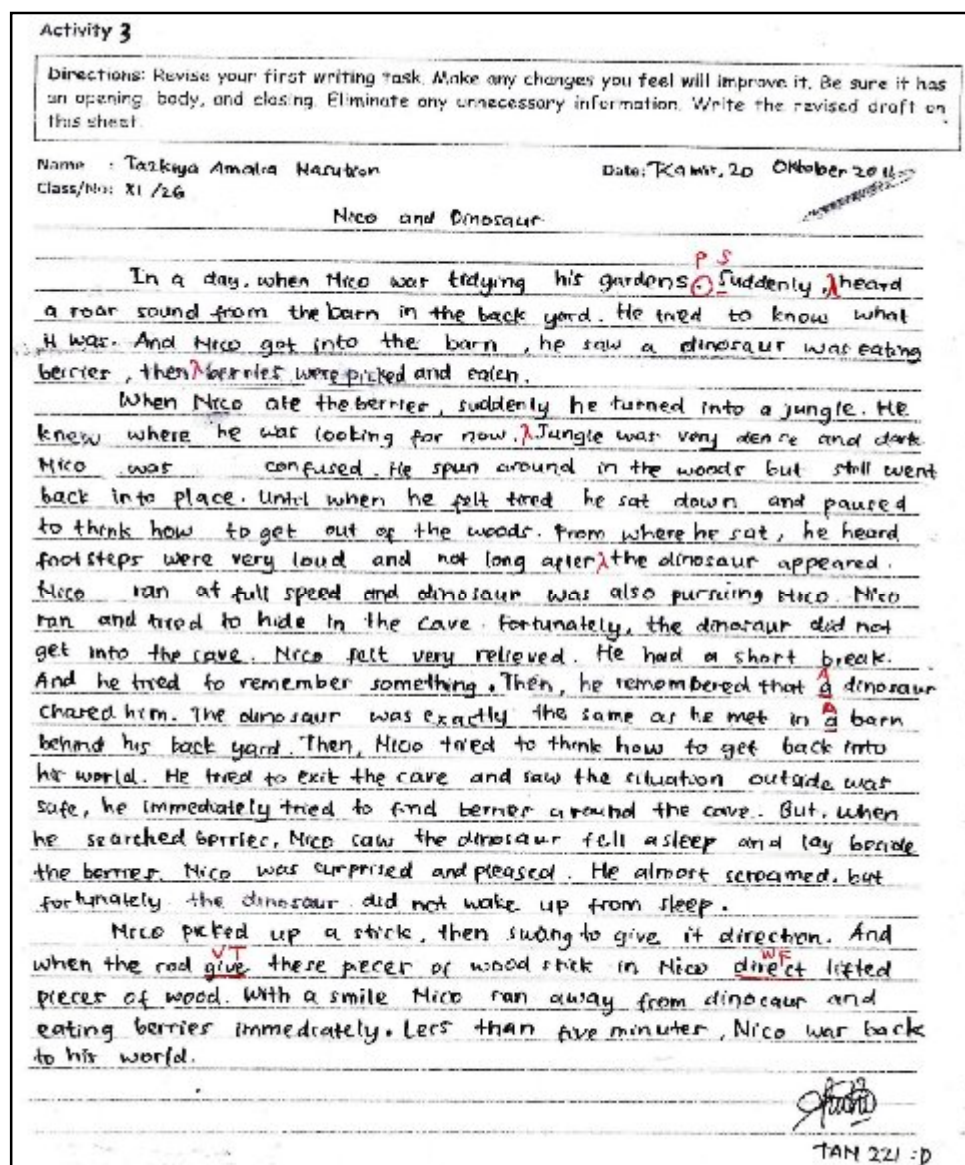 Activity 3
Directions: Revise your first writing task. Make any changes you feel will improve it. Be sure it has
an opening, body, and closing. Eliminate any unnecessary information. Write the revised draft on
this sheet.
Name : Tazkiya Amalia Nasution Date: Kamis, 20 Oktober 2016
Class/No: XI /26
Nico and Dinosaur
P S
In a day, when Nico was tidying his gardens. Suddenly, heard
a roar sound from the barn in the back yard. He tried to know what
it was. And Nico got into the barn, he saw a dinosaur was eating
berries, then berries were picked and eaten.
When Nico ate the berries, suddenly he turned into a jungle. He
knew where he was looking for now. Jungle was very dense and dark
Nico was confused. He spun around in the woods but still went
back into place. Until when he felt tired he sat down and paused
to think how to get out of the woods. From where he sat, he heard
footsteps were very loud and not long after the dinosaur appeared.
Nico ran at full speed and dinosaur was also pursuing Nico. Nico
ran and tried to hide in the cave. Fortunately, the dinosaur did not
get into the cave. Nico felt very relieved. He had a short break.
A
And he tried to remember something. Then, he remembered that a dinosaur
A
chased him. The dinosaur was exactly the same as he met in a barn
behind his back yard. Then, Nico tried to think how to get back into
his world. He tried to exit the cave and saw the situation outside was
safe, he immediately tried to find berries around the cave. But, when
he searched berries, Nico saw the dinosaur fell asleep and lay beside
the berries. Nico was surprised and pleased. He almost screamed, but
fortunately the dinosaur did not wake up from sleep.
Nico picked up a stick, then swang to give it direction. And
VT WF
when the rod give these pieces of wood stick in Nico direct lifted
pieces of wood. With a smile Nico ran away from dinosaur and
eating berries immediately. Less than five minutes, Nico was back
to his world.
TAN 221 :D